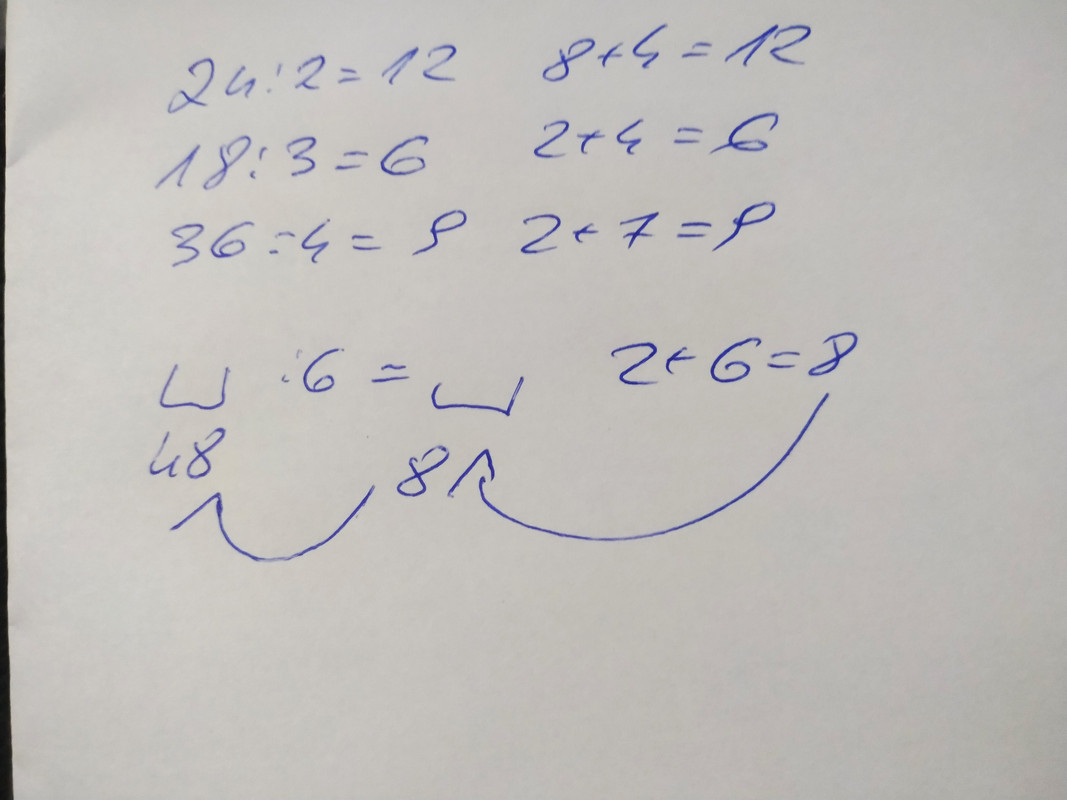 24:2=12 8+4=12
18:3=6 2+4=6
36:4=9 2+7=9
:6= 2+6=8
48 8